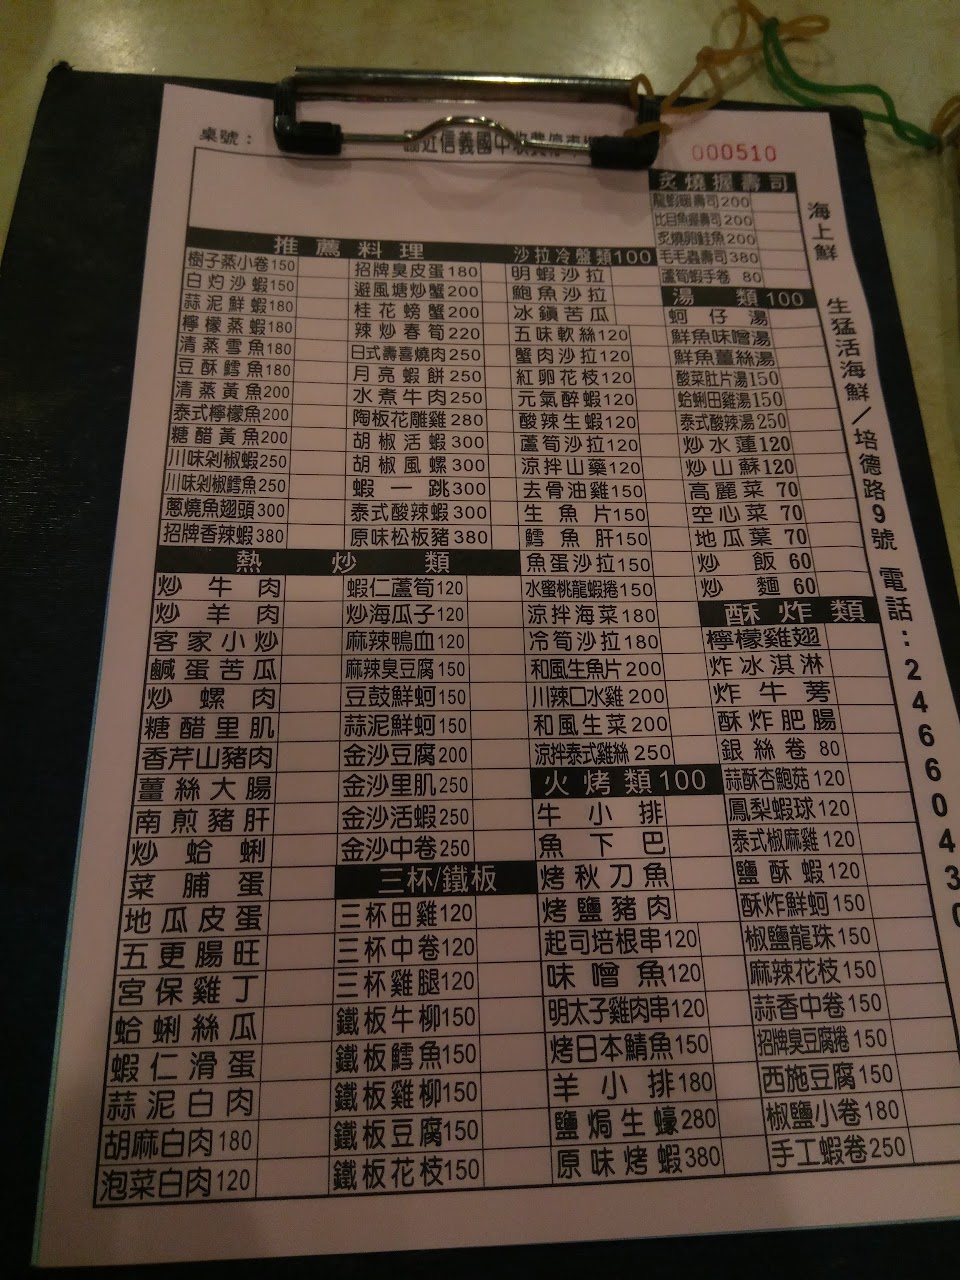 桌號：
近信義國中收費停車場
000510
炙燒握壽司
龍蝦握壽司200
比目魚握壽司200
炙燒卵鮭魚200
毛毛蟲壽司380
蘆筍蝦手卷 80
湯 類100
蚵仔湯
鮮魚味噌湯
鮮魚薑絲湯
酸菜肚片湯150
蛤蜊田雞湯150
泰式酸辣湯250
炒水蓮120
炒山蘇120
高麗菜 70
空心菜 70
地瓜葉 70
炒飯 60
炒麵 60
酥炸類
檸檬雞翅
炸冰淇淋
炸牛蒡
酥炸肥腸
銀絲卷 80
蒜酥杏鮑菇120
鳳梨蝦球120
泰式椒麻雞120
鹽酥蝦120
酥炸鮮蚵150
椒鹽龍珠150
麻辣花枝150
蒜香中卷150
招牌臭豆腐捲150
西施豆腐150
椒鹽小卷180
手工蝦卷250
推薦料理
樹子蒸小卷150
白灼沙蝦150
蒜泥鮮蝦180
檸檬蒸蝦180
清蒸雪魚180
豆酥鱈魚180
清蒸黃魚200
泰式檸檬魚200
糖醋黃魚200
川味剁椒蝦250
川味剁椒鱈魚250
蔥燒魚翅頭300
招牌香辣蝦380
招牌臭皮蛋180
避風塘炒蟹200
桂花螃蟹200
辣炒春筍220
日式壽喜燒肉250
月亮蝦餅250
水煮牛肉250
陶板花雕雞280
胡椒活蝦300
胡椒風螺300
蝦一跳300
泰式酸辣蝦300
原味松板豬380
沙拉冷盤類100
明蝦沙拉
鮑魚沙拉
冰鎮苦瓜
五味軟絲120
蟹肉沙拉120
紅卵花枝120
元氣醉蝦120
酸辣生蝦120
蘆筍沙拉120
涼拌山藥120
去骨油雞150
生魚片150
鱈魚肝150
魚蛋沙拉150
水蜜桃龍蝦捲150
涼拌海菜180
冷筍沙拉180
和風生魚片200
川辣口水雞200
和風生菜200
涼拌泰式雞絲250
火烤類100
牛小排
魚下巴
烤秋刀魚
烤鹽豬肉
起司培根串120
味噌魚120
明太子雞肉串120
烤日本鯖魚150
羊小排180
鹽焗生蠔280
原味烤蝦380
熱炒類
炒牛肉
炒羊肉
客家小炒
鹹蛋苦瓜
炒螺肉
糖醋里肌
香芹山豬肉
薑絲大腸
南煎豬肝
炒蛤蜊
菜脯蛋
地瓜皮蛋
五更腸旺
宮保雞丁
蛤蜊絲瓜
蝦仁滑蛋
蒜泥白肉
胡麻白肉180
泡菜白肉120
蝦仁蘆筍120
炒海瓜子120
麻辣鴨血120
麻辣臭豆腐150
豆鼓鮮蚵150
蒜泥鮮蚵150
金沙豆腐200
金沙里肌250
金沙活蝦250
金沙中卷250
三杯/鐵板
三杯田雞120
三杯中卷120
三杯雞腿120
鐵板牛柳150
鐵板鱈魚150
鐵板雞柳150
鐵板豆腐150
鐵板花枝150
海上鮮
生猛活海鮮／培德路9號 電話：24660430